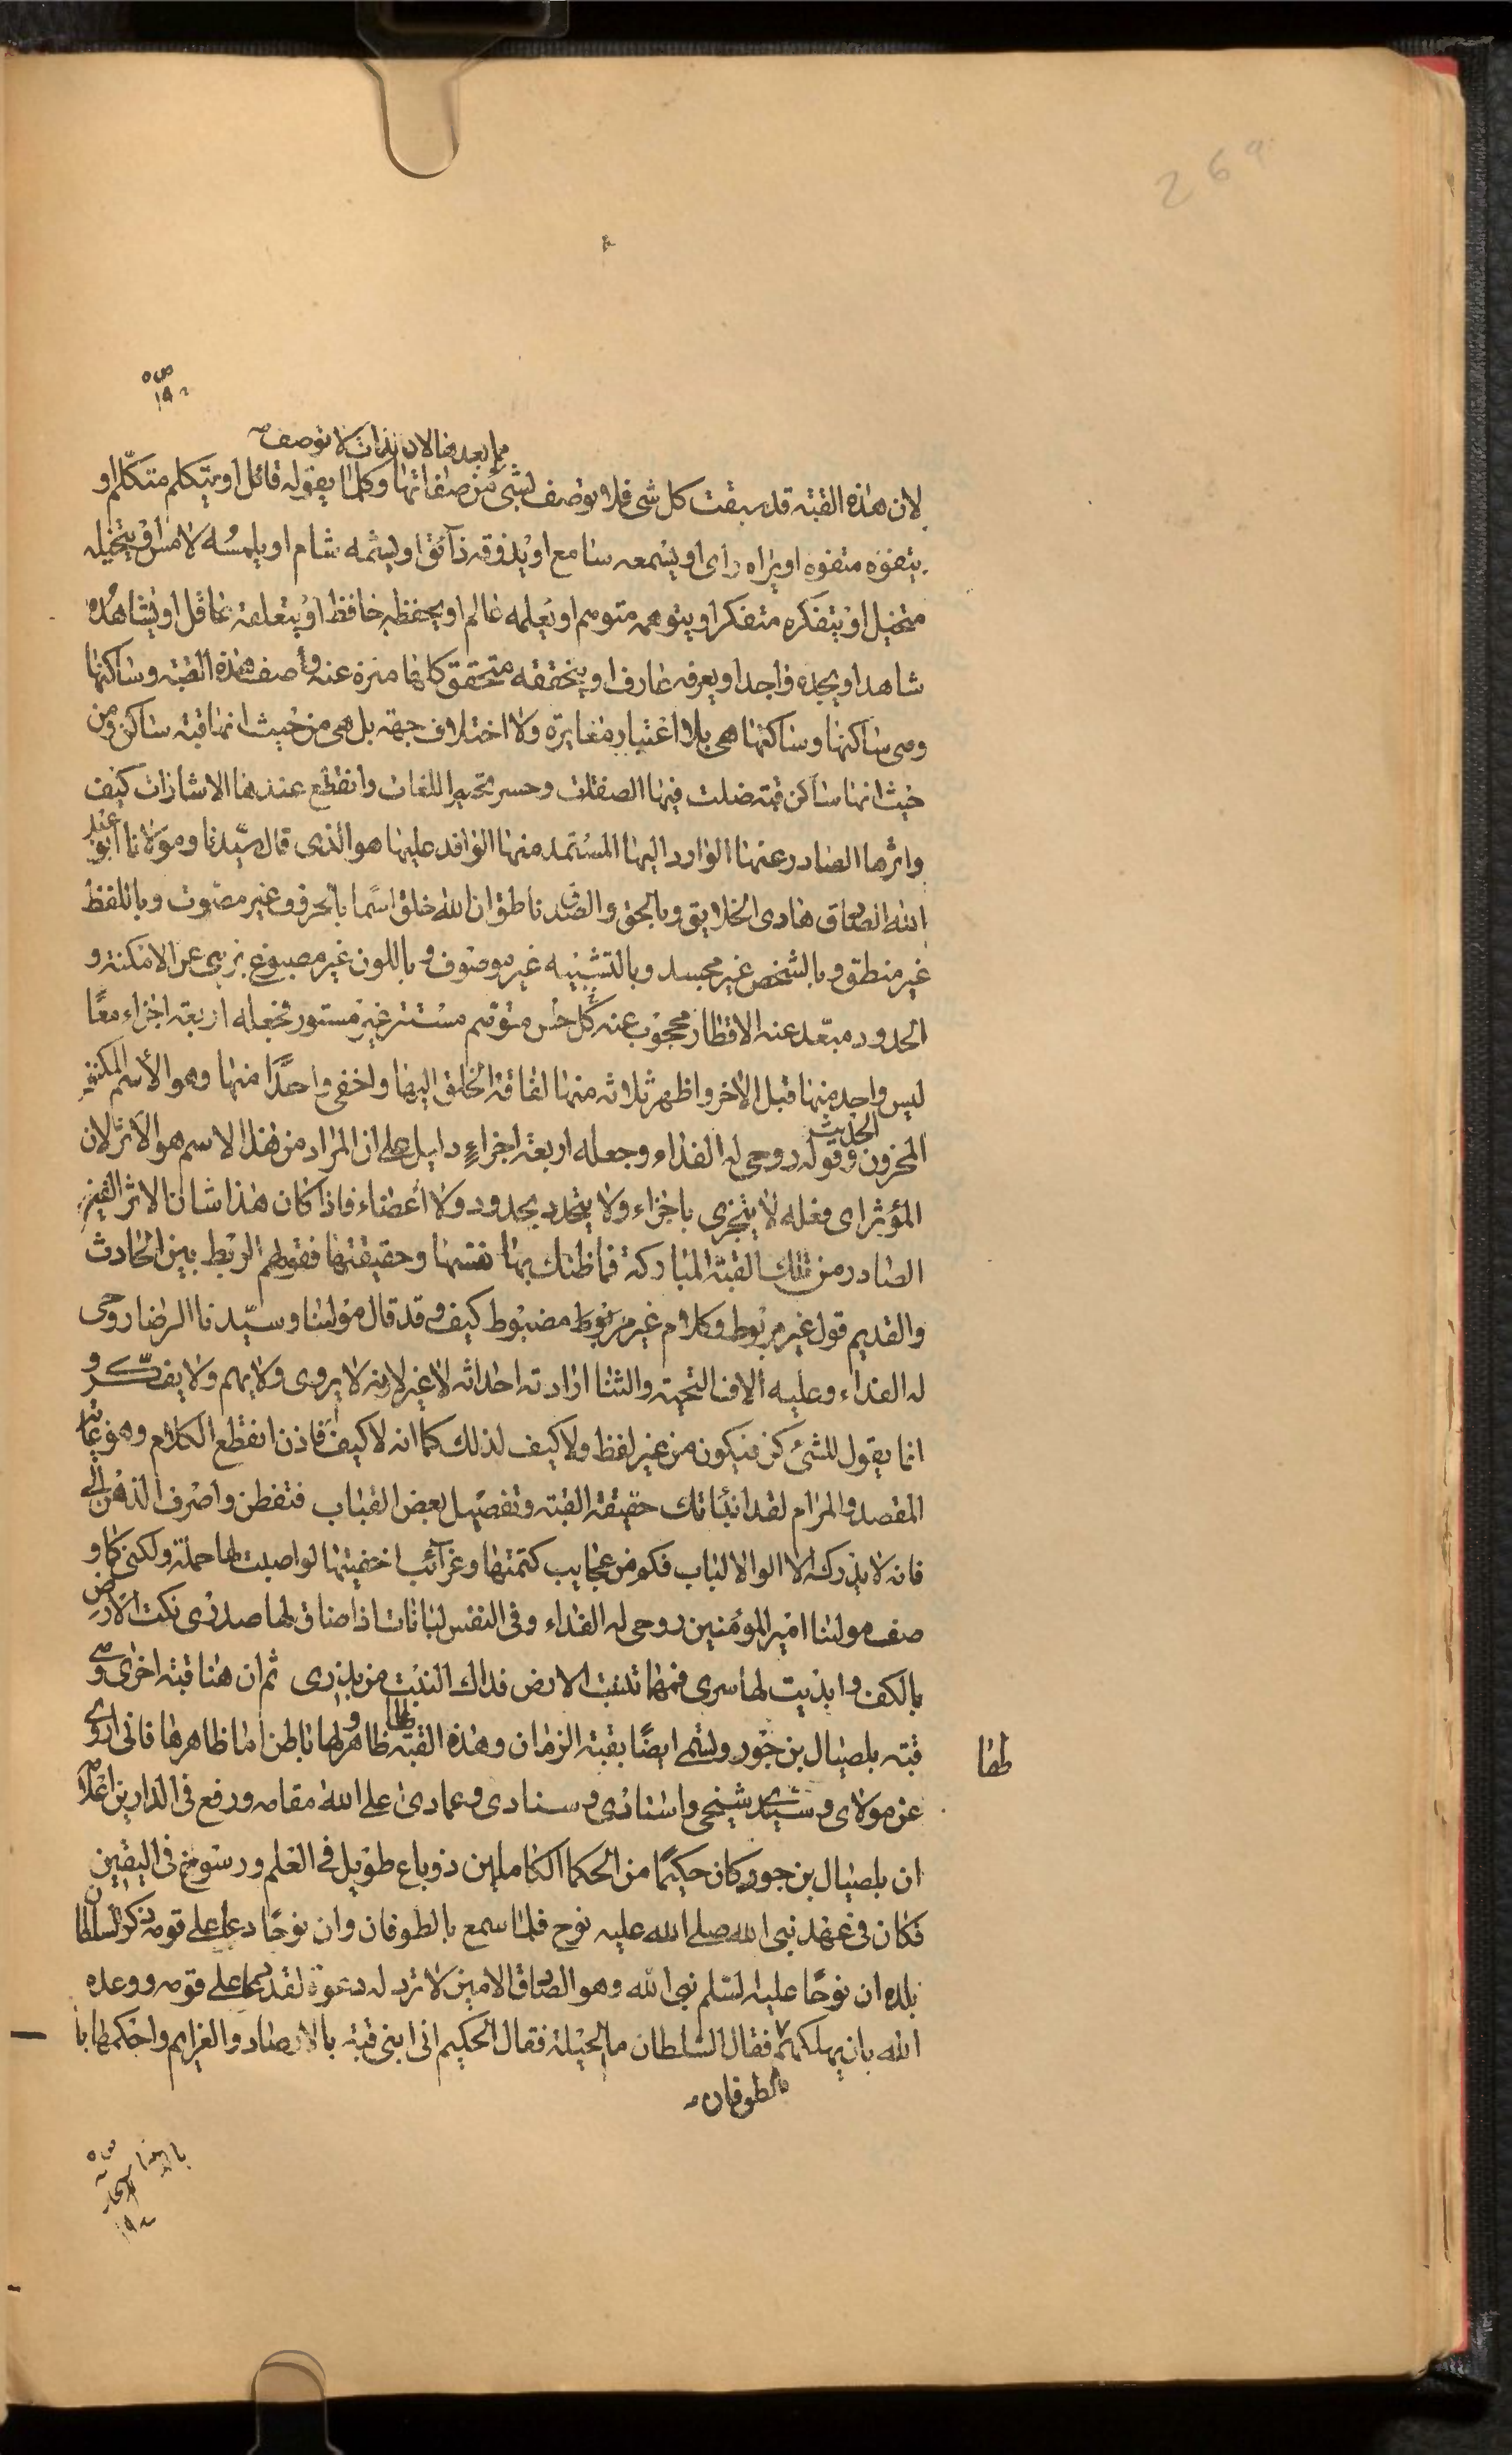 269
ص
١٩٠
مما بعدها لان الذات لا توصف
لان هذه القبة قد سبقت كل شی فلا توصف بشی من صفاتها وكلما يقوله قائل او يتكلم متكلم او
يتفوه متفوه او يراه رأی او يسمعه سامع او يذوقه ذآئق او يشمه شام او يلمسه لامس او يتخيله
متخيل او يتفكره متفكر او يتوهمه متوهم او يعلمه عالم او يحفظه حافظ او يتعلقه عاقل او يشاهده
شاهد او يجده واجد او يعرفه عارف او يتحققه متحقق كلها منزة عنه واصف هذه القبة وساكنها
وهی ساكنها وساكنها هی بلا اعتبار مغايرة ولا اختلاف جهة بل هی من حيث انها قبة ساكن ومن
حيث انها ساكن قبة ضلت فيها الصفات وحسر تحبير اللغات وانقطع عندها الاشارات كيف
واثرها الصادر عنها الوارد اليها المستمد منها الوافد عليها هو الذی قال سيدنا ومولانا ابو عبد
الله الصادق هادی الخلايق وبالحق والصدق ناطق ان الله خلق اسما بالحروف غير مصوت وباللفظ
غير منطق وبالشخص غير مجسد وبالتشبيه غير موصوف وباللون غير مصبوغ بری عن الامكنة و
الحدود مبعد عنه الاقطار محجوب عنه كل حس متوهم مستتر غير مستور فجعله اربعة اجزاء معًا
ليس واحد منها قبل الاخر واظهر ثلاثه منها لفاقة الخلق اليها واخفی واحدًا منها وهو الأسم المكنون
المخزون الحديث وقوله روحی له الفداء وجعله اربعة اجزاءٍ دليل علی ان المراد من هذا الاسم هو الاثر لان
المؤثر ای فعله لا يتجزی باجزاء ولا يتحدد بحدود ولا أعضاء فاذا كان هذا شان الاثر الغير
الصادر من تلك القبة المباركة فما ظنك بها نفسها وحقيقتها فقولهم الربط بين الحادث
والقديم قول غير مربوط وكلام غير مربوط مضبوط كيف وقد قال مولينا وسيدنا الرضا روحی
له الفداء وعليه ألاف التحية والثنا ارادته احداثه لا غير لانه لا يروی ولا يهم ولا يفكر و
انما يقول للشئ كن فيكون من غير لفظ ولا كيف لذلك كما انه لا كيف له فاذن انقطع الكلام وهو غاية
المقصد والمرام لقد انبئاتك حقيقة القبة وتفصيل بعض القباب فتفطن واصرف الذهن اليه
فانه لا يدركه الا الوالا لباب فكم من عجايب كتمتها وغرآئب اخفيتها لو اصبت لها حملة ولكنی كما و
صف مولينا امير المؤمنين روحی له الفداء وفی النفس لبانات اذا ضاق لها صدری نكت الارض
بالكف وابديت لها سری فمهما تنبت الارض فذاك النبت من بذری ثم ان هنا قبة اخری وهی
قبة بلصيال بن حور وتسمی ايضًا بقبة الزمان وهذه القبة لها ظاهر ولها باطن اما ظاهرها فانی اروی
طفا
عن مولای وسيدی شيخی واستادی وسنادی وعمادی اعلی الله مقامه ورفع فی الدارين اعلامه
ان بلصيال بن حور كان حكيمًا من الحكما الكاملين ذو باع طويل فی العلم ورسوخ فی اليقين
فكان فی عهد نبی الله صلی الله عليه نوح فلما سمع بالطوفان وان نوحًا دعا علی قومه ذكر لسلطان
بلده ان نوحًا عليه السلم نبی الله وهو الصادق الامين لا ترد له دعوة لقد دعا علی قومه ووعده
الله بان يهلكهم فقال السلطان ما الحيلة فقال الحكيم انی ابنی قبة بالارصاد والعزايم واحكمها با
لطوفان